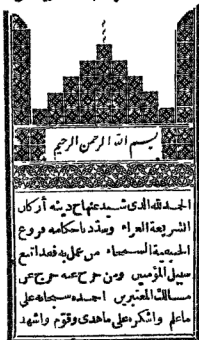 بسم الله الرحمن الرحيم
الحمد لله الذى شيد عنهاج دينه أركان
الشريعة الغراء وسدد باحكامه فروع
الحنيفية السمحاء من عمل به فقد اتبع
سبيل المؤمنين ومن خرج عنه خرج عن
مسالك المعتبرين احمده سبحانه على
ماعلم واشكره على ماهدى وقوم واشهد